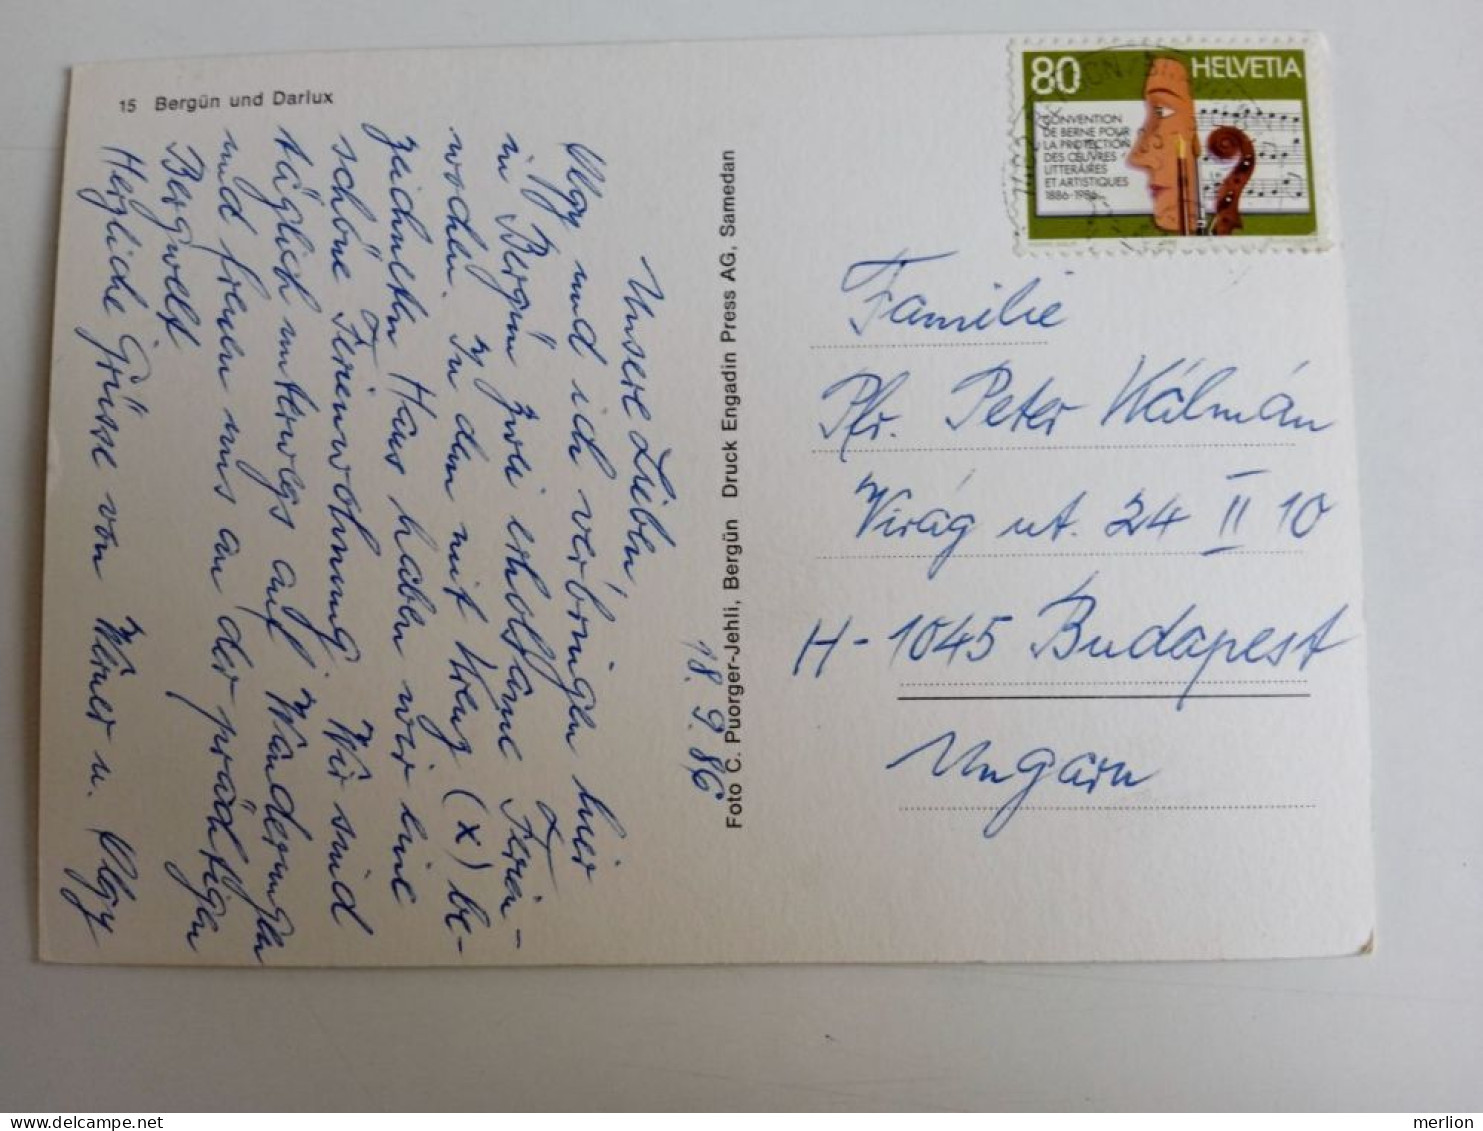 15 Bergün und Darlux
18. 9. 86
Unsere Lieben,
Olgy und ich verbringen hier
in Bergün zwei erholsame Ferien-
wochen. In dem mit Kreuz (x) be-
zeichneten Haus haben wir eine
schöne Ferienwohnung. Wir sind
täglich unterwegs auf Wanderungen
und freuen uns an der prächtigen
Bergwelt
Herzliche Grüsse von Werner u. Olgy
Foto C. Puorger-Jehli, Bergün Druck Engadin Press AG, Samedan
80 HELVETIA
CONVENTION
DE BERNE POUR
LA PROTECTION
DES ŒUVRES
LITTERAIRES
ET ARTISTIQUES
1886-1986
Familie
Pfr. Peter Kálmán
Virág ut. 24 II 10
H-1045 Budapest
Ungarn
merlion